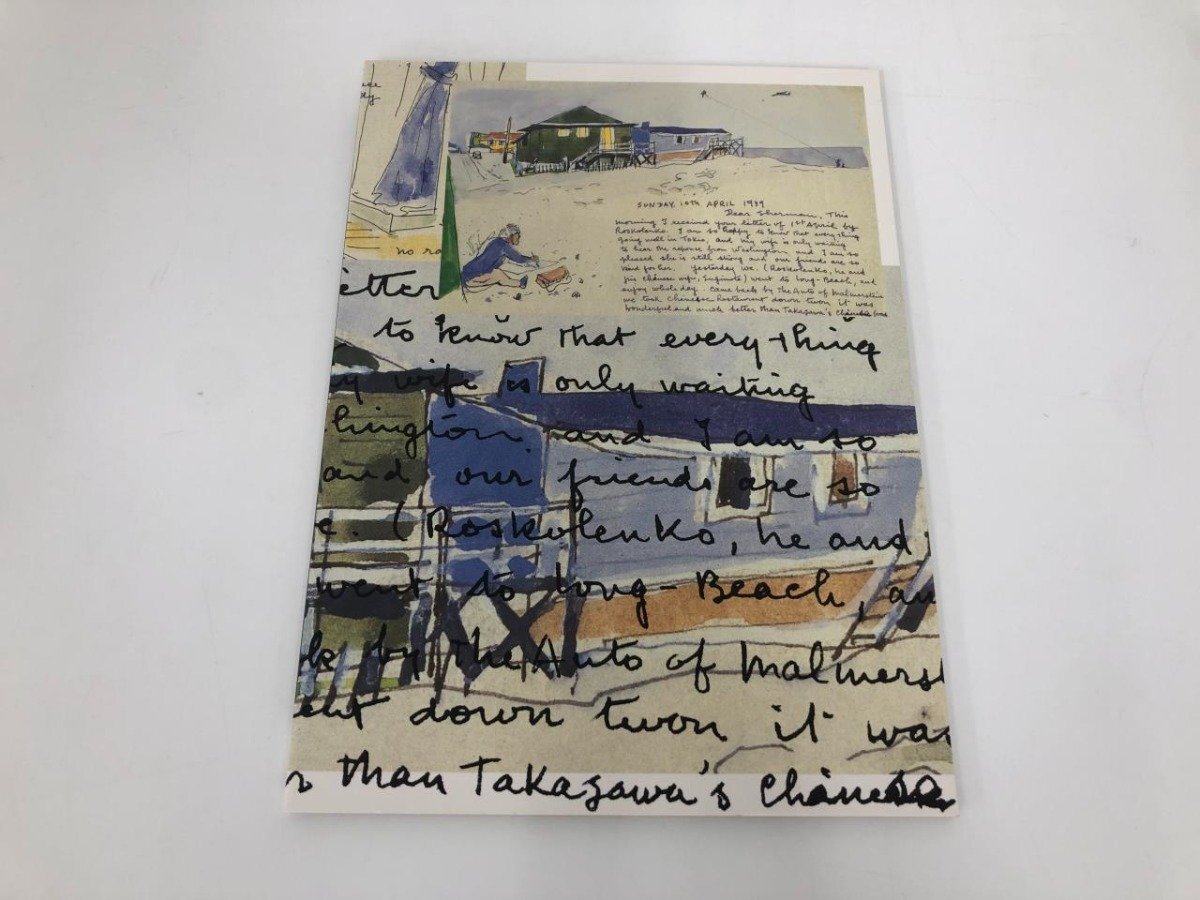 no ra
SUNDAY 10TH APRIL 1939
Dear Sherman, This
morning I received your letter of 1st April by
Roskolenko. I am so happy to know that every thing
going well in Tokio, and my wife is only waiting
to hear the reponse from Washington and I am so
pleased she is still strong and our friends are so
kind for her. Yesterday we. (Roskolenko, he and
his chinese wife, Sugimoto) went to Long-Beach, and
enjoy whole day. came back by The Auto of Malmerstein
we took Chinese Restaurant down twon it was
wonderful and much better than Takasawa's
etter
to know that every-thing
my wife is only waiting
hington and I am so
and our friends are so
e. (Roskolenko, he and
went to Long-Beach, an
k by The Auto of Malmerst
ent down twon it was
r than Takasawa's